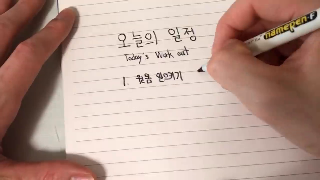 오늘의 일정
Today's Work out
1 윗몸 일으키기
namepen-F